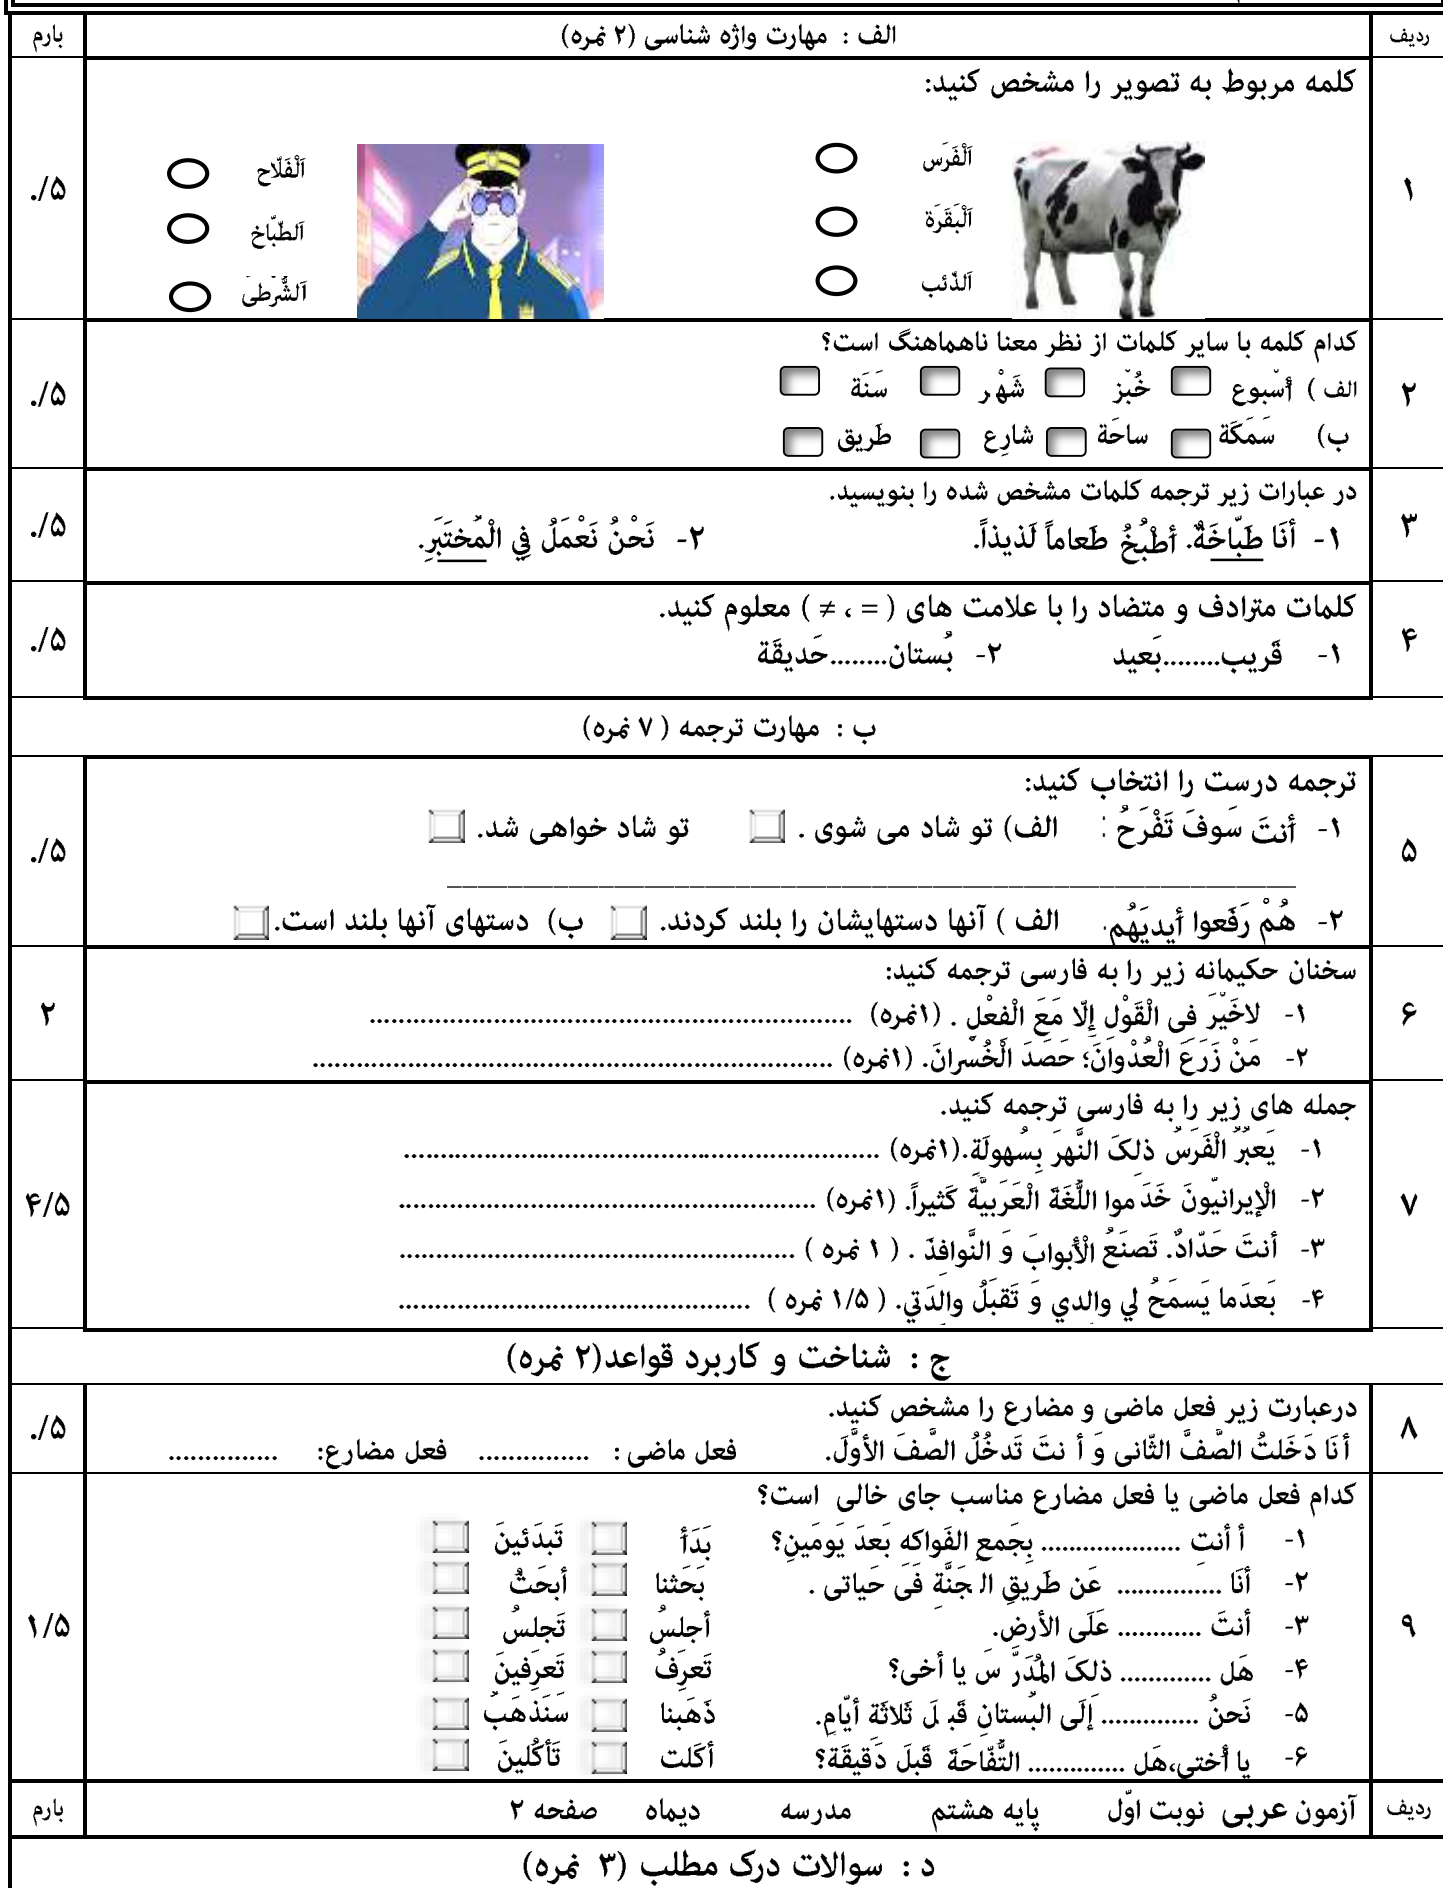 ردیف الف : مهارت واژه شناسی (۲ نمره) بارم
۱ کلمه مربوط به تصویر را مشخص کنید: ./۵
اَلْفَرَس اَلْفَلّاح
اَلْبَقَرَة اَلطّبّاخ
اَلذّئب اَلشُّرَطیَ
۲ کدام کلمه با سایر کلمات از نظر معنا ناهماهنگ است؟ ./۵
الف ) أسْبوع خُبْز شَهْر سَنَة
ب) سَمَکَة ساحَة شارِع طَریق
۳ در عبارات زیر ترجمه کلمات مشخص شده را بنویسید. ./۵
۱- أنَا طَبّاخَةٌ. أَطْبُخُ طَعاماً لَذیذاً. ۲- نَحْنُ نَعْمَلُ فِي الْمُختَبَرِ.
۴ کلمات مترادف و متضاد را با علامت های ( = ، ≠ ) معلوم کنید. ./۵
۱- قَریب........بَعید ۲- بُستان........حَدیقَة
ب : مهارت ترجمه ( ۷ نمره)
۵ ترجمه درست را انتخاب کنید: ./۵
۱- أنتَ سَوفَ تَفْرَحُ : الف) تو شاد می شوی . تو شاد خواهی شد.
۲- هُمْ رَفَعوا أیدیَهُم. الف ) آنها دستهایشان را بلند کردند. ب) دستهای آنها بلند است.
۶ سخنان حکیمانه زیر را به فارسی ترجمه کنید: ۲
۱- لاخَیْرَ فِی الْقَوْلِ إلّا مَعَ الْفِعْلِ . (۱نمره) ................................................................
۲- مَنْ زَرَعَ الْعُدْوانَ؛ حَصَدَ الْخُسْرانَ. (۱نمره) ......................................................................
۷ جمله های زیر را به فارسی ترجمه کنید. ۴/۵
۱- یَعبُرُ الْفَرَسُ ذلکَ النَّهرَ بِسُهولَةٍ.(۱نمره) ................................................................
۲- الْإیرانیّونَ خَدَموا اللُّغَةَ الْعَرَبیَّةَ کَثیراً. (۱نمره) ........................................................
۳- أنتَ حَدّادٌ. تَصنَعُ الْأبوابَ وَ النَّوافِذَ . ( ۱ نمره ) .....................................................
۴- بَعدَما یَسمَحُ لي والِدي وَ تَقبَلُ والِدَتي. ( ۱/۵ نمره ) ...............................................
ج : شناخت و کاربرد قواعد(۲ نمره)
۸ درعبارت زیر فعل ماضی و مضارع را مشخص کنید. ./۵
أنَا دَخَلتُ الصَّفَّ الثّانی وَ أ نتَ تَدخُلُ الصَّفَ الأوَّلَ. فعل ماضی : ............... فعل مضارع: ...............
۹ کدام فعل ماضی یا فعل مضارع مناسب جای خالی است؟ ۱/۵
۱- أ أنتِ .................... بِجَمعِ الفَواکه بَعدَ یَومَینِ؟ بَدَأَ تَبدَئینَ
۲- أنَا ............... عَن طَریقِ الجَنَّةِ فَی حَیاتی . بَحَثنا أبحَثُ
۳- أنتَ ............ عَلَی الأرضِ. أجلسُ تَجلسُ
۴- هَل ............. ذلکَ المُدَرَّ سَ یا أخی؟ تَعرَِفُ تَعرَِفینَ
۵- نَحنُ .............. إلَی البُستانِ قَبلَ ثَلاثَةِ أیّامٍ. ذَهَبنا سَنَذهَبُ
۶- یا أختی،هَل .............. التُّفّاحَةَ قَبلَ دَقیقَة؟ أکَلت تَأکُلینَ
ردیف آزمون عربی نوبت اوّل پایه هشتم مدرسه دیماه صفحه ۲ بارم
د : سوالات درک مطلب (۳ نمره)